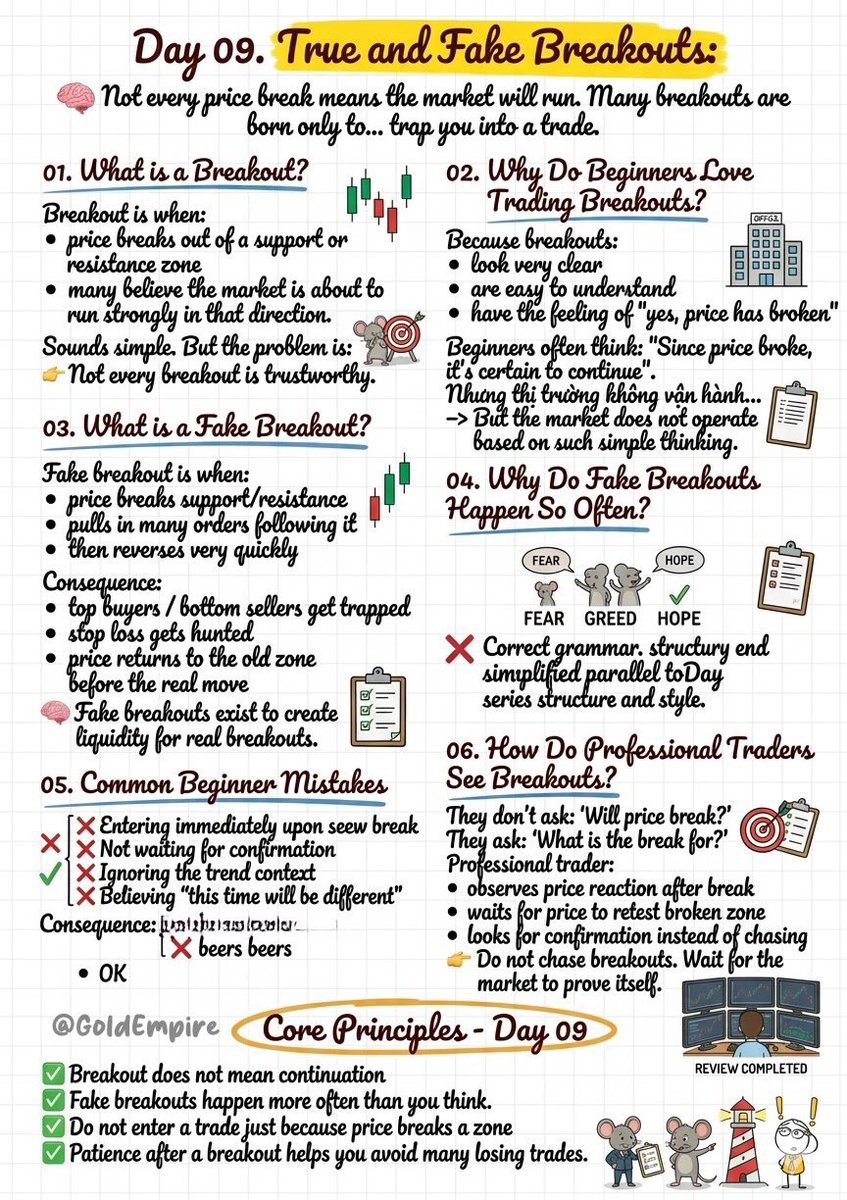 Day 09. True and Fake Breakouts:
Not every price break means the market will run. Many breakouts are
born only to... trap you into a trade.
01. What is a Breakout?
Breakout is when:
• price breaks out of a support or
resistance zone
• many believe the market is about to
run strongly in that direction.
Sounds simple. But the problem is:
👉 Not every breakout is trustworthy.
02. Why Do Beginners Love
Trading Breakouts?
Because breakouts:
• look very clear
• are easy to understand
• have the feeling of "yes, price has broken"
Beginners often think: "Since price broke,
it's certain to continue".
Nhưng thị trường không vận hành...
-> But the market does not operate
based on such simple thinking.
03. What is a Fake Breakout?
Fake breakout is when:
• price breaks support/resistance
• pulls in many orders following it
• then reverses very quickly
Consequence:
• top buyers / bottom sellers get trapped
• stop loss gets hunted
• price returns to the old zone
before the real move
Fake breakouts exist to create
liquidity for real breakouts.
04. Why Do Fake Breakouts
Happen So Often?
FEAR
HOPE
FEAR GREED HOPE
❌ Correct grammar. structury end
simplified parallel toDay
series structure and style.
05. Common Beginner Mistakes
❌ Entering immediately upon seew break
❌ Not waiting for confirmation
❌ Ignoring the trend context
❌ Believing "this time will be different"
Consequence:
❌ beers beers
• OK
06. How Do Professional Traders
See Breakouts?
They don't ask: 'Will price break?'
They ask: 'What is the break for?'
Professional trader:
• observes price reaction after break
• waits for price to retest broken zone
• looks for confirmation instead of chasing
👉 Do not chase breakouts. Wait for the
market to prove itself.
REVIEW COMPLETED
@GoldEmpire
Core Principles - Day 09
✅ Breakout does not mean continuation
✅ Fake breakouts happen more often than you think.
✅ Do not enter a trade just because price breaks a zone
✅ Patience after a breakout helps you avoid many losing trades.